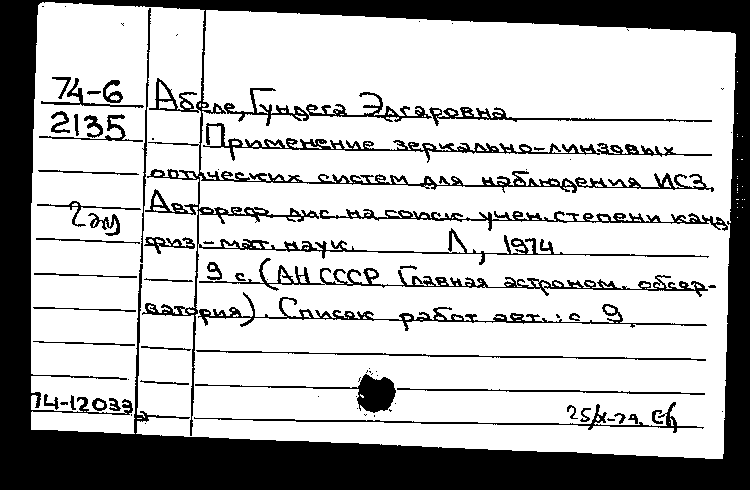 74-6 Абеле, Гундега Эдгаровна.
2135 Применение зеркально-линзовых
оптических систем для наблюдения ИСЗ.
Автореф. дис. на соиск. учен. степени канд.
физ.-мат. наук. Л., 1974.
9 с. (АН СССР. Главная астроном. обсер-
ватория). Список работ авт.: с. 9.
74-12033
25/X-74.